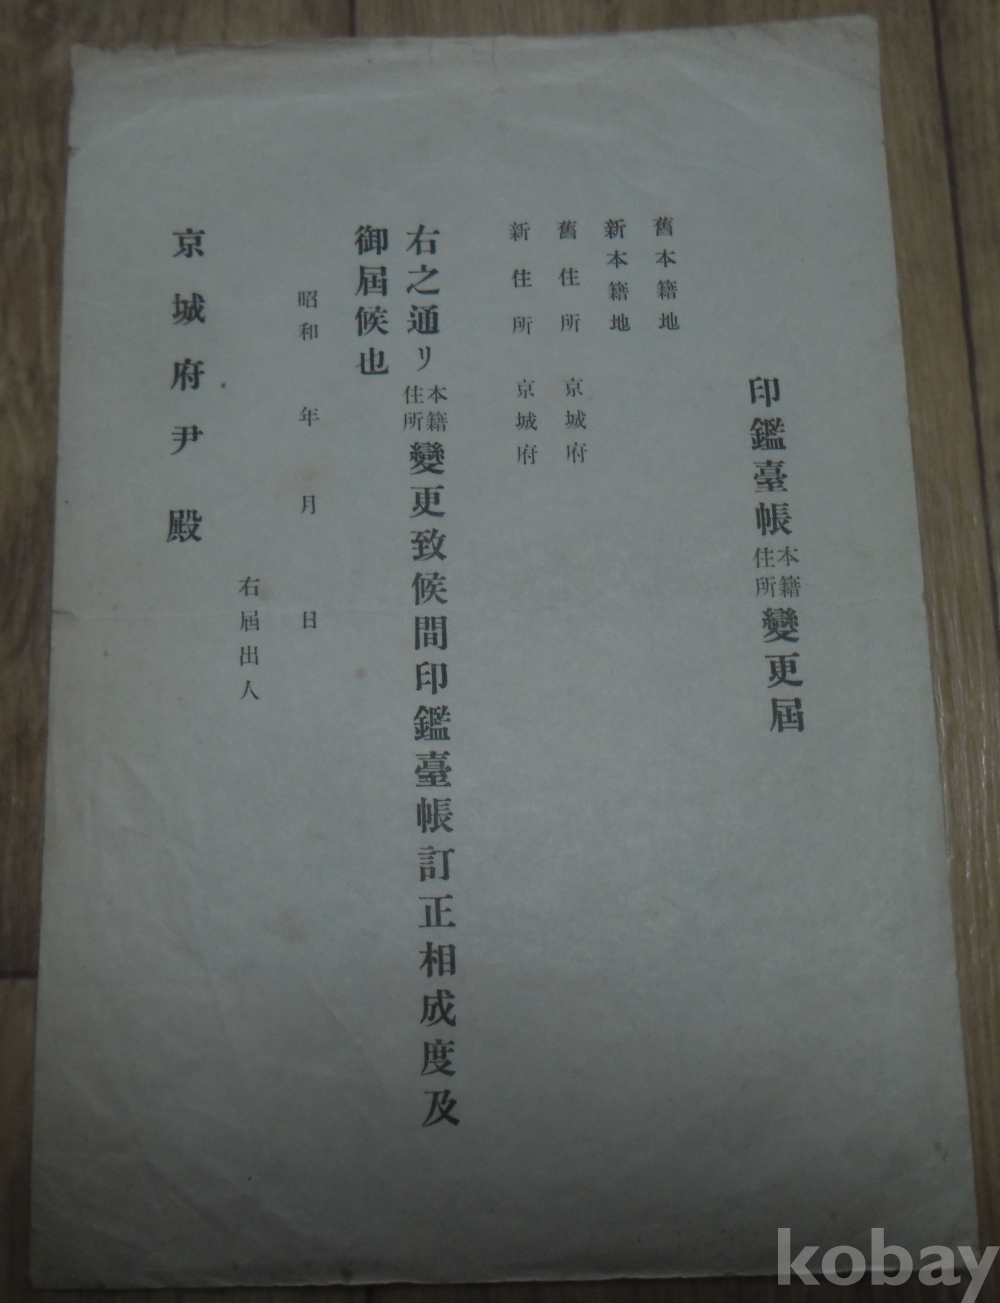 印鑑臺帳本籍住所變更屆
舊本籍地
新本籍地
舊住所 京城府
新住所 京城府
右之通リ本籍住所變更致候間印鑑臺帳訂正相成度及
御屆候也
昭和 年 月 日
右屆出人
京城府尹殿
kobay